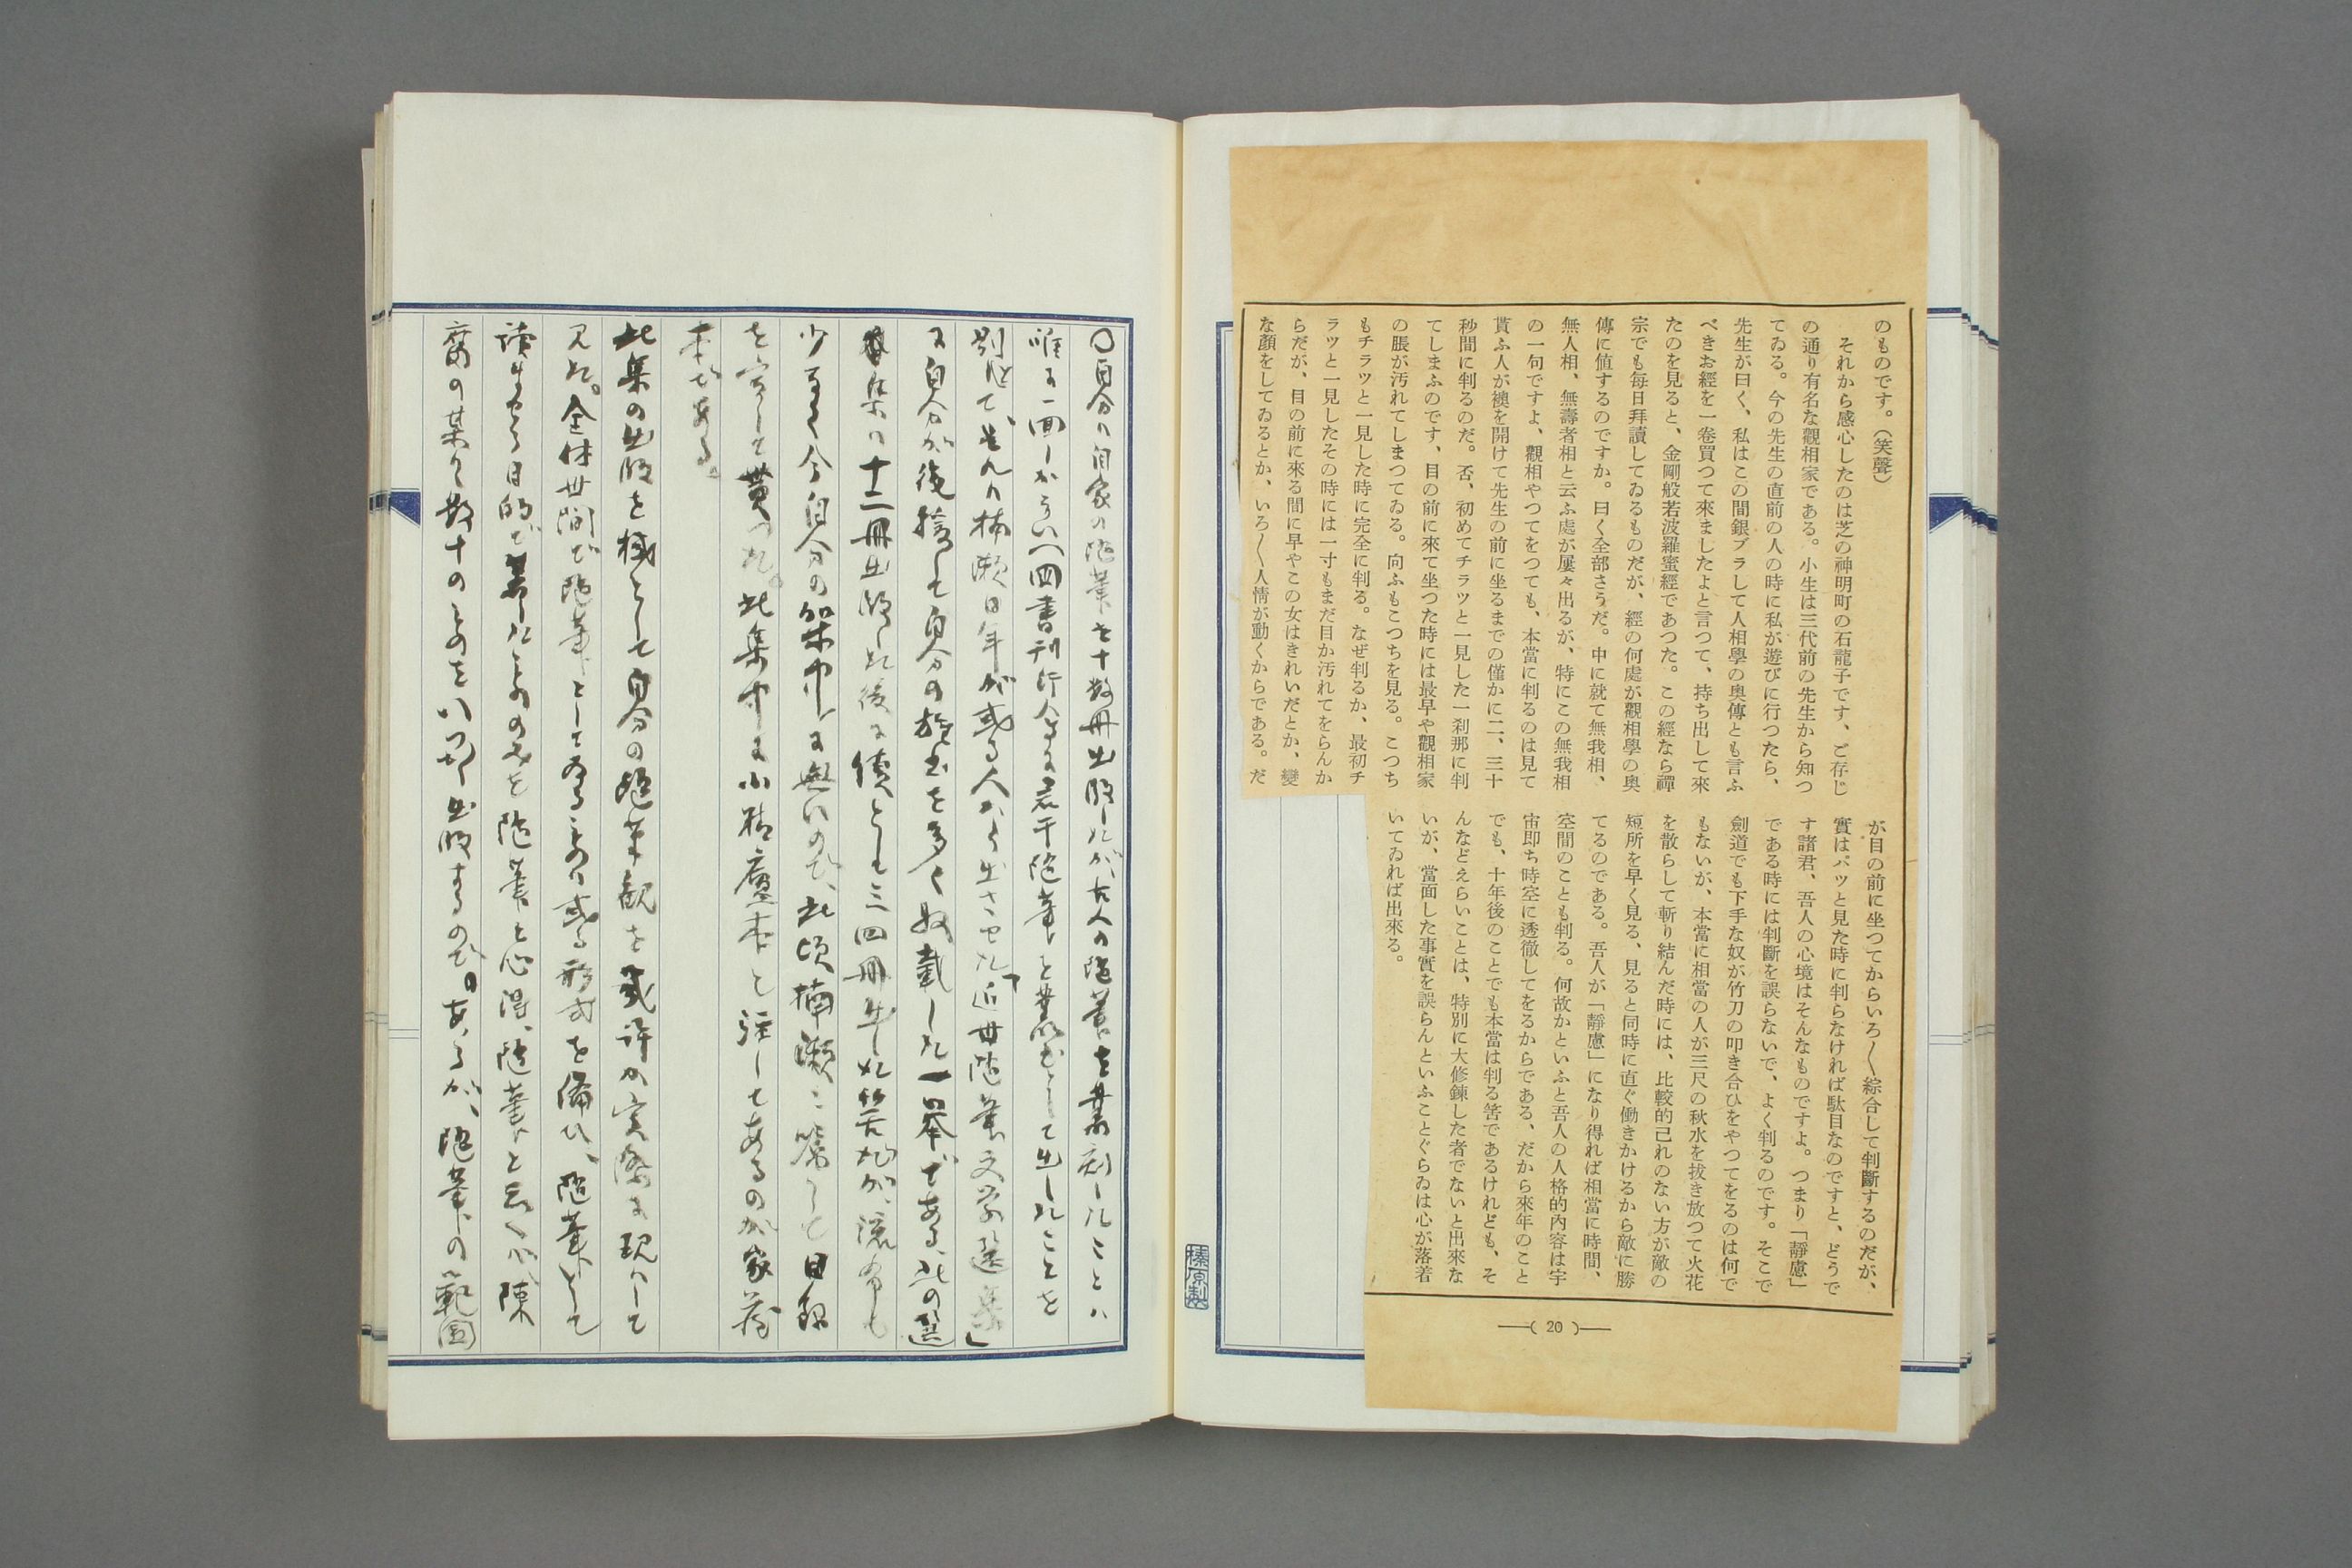 のものです。（笑聲）
それから感心したのは芝の神明町の石龍子です、ご存じ
の通り有名な觀相家である。小生は三代前の先生から知つ
てゐる。今の先生の直前の人の時に私が遊びに行つたら、
先生が曰く、私はこの間銀ブラして人相學の奥傳とも言ふ
べきお經を一卷買つて來ましたよと言つて、持ち出して來
たのを見ると、金剛般若波羅蜜經であつた。この經なら禪
宗でも毎日拜讀してゐるものだが、經の何處が觀相學の奥
傳に値するのですか。曰く全部さうだ。中に就て無我相、
無人相、無壽者相と云ふ處が屢々出るが、特にこの無我相
の一句ですよ、觀相やつてをつても、本當に判るのは見て
貰ふ人が襖を開けて先生の前に坐るまでの僅かに二、三十
秒間に判るのだ。否、初めてチラツと一見した一刹那に判
てしまふのです、目の前に來て坐つた時には最早や觀相家
の眼が汚れてしまつてゐる。向ふもこつちを見る。こつち
もチラツと一見した時に完全に判る。なぜ判るか、最初チ
ラツと一見したその時には一寸もまだ目か汚れてをらんか
らだが、目の前に來る間に早やこの女はきれいだとか、變
な顏をしてゐるとか、いろ〱人情が動くからである。だ
が目の前に坐つてからいろ〱綜合して判斷するのだが、
實はパツと見た時に判らなければ駄目なのですと、どうで
す諸君、吾人の心境はそんなものですよ。つまり「靜慮」
である時には判斷を誤らないで、よく判るのです。そこで
劍道でも下手な奴が竹刀の叩き合ひをやつてをるのは何で
もないが、本當に相當の人が三尺の秋水を拔き放つて火花
を散らして斬り結んだ時には、比較的己れのない方が敵の
短所を早く見る、見ると同時に直ぐ働きかけるから敵に勝
てるのである。吾人が「靜慮」になり得れば相當に時間、
空間のことも判る。何故かといふと吾人の人格的內容は宇
宙即ち時空に透徹してをるからである、だから來年のこと
でも、十年後のことでも本當は判る筈であるけれども、そ
んなどえらいことは、特別に大修鍊した者でないと出來な
いが、當面した事實を誤らんといふことぐらゐは心が落着
いてゐれば出來る。
—( 20 )—
榛原製
〇自分の自家の随筆を十数冊出版したが古人の随筆を
唯に一面しかない國書刊行人
自分が後援して自分の蔵書を多く収載した一挙である、此の選
集の十二冊出版した後に續として三四冊出した筈だが、
少なく今自分の架中に無いので、此頃楠瀬に嘱して目録
を寫して貰つた。此集中に小精廬本と註してあるのが家蔵
本である。
此集の出版を機として自分の随筆観を或許か実際に現はして
見た。全体世間で随筆として居るものは或る形式を備ひ、随筆として
読ませる目的で著したもののみを随筆と心得、随筆と云へば、陳
腐の某々数十のものをいつも出版するのである。あるが、随筆の範囲